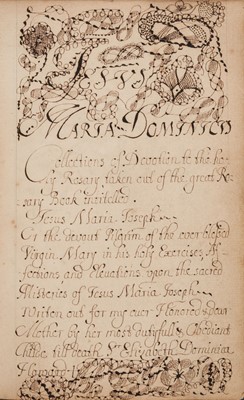 IESVS
MARIA DOMINICVS
Collections of Devotion to the ho-
ly Rosary taken out of the great Ro-
sary Book intitelled.
Iesus Maria Ioseph
Or the devout Pilgrim of the ever blessed
Virgin Mary in his holy Exercises Af-
fections and Elevations upon the sacred
Misteries of Iesus Maria Ioseph
Writen out for my ever Honored & dear
Mother by her most dutyfull & Obedient
Childe till death Sr Elizabeth Dominica
Howard